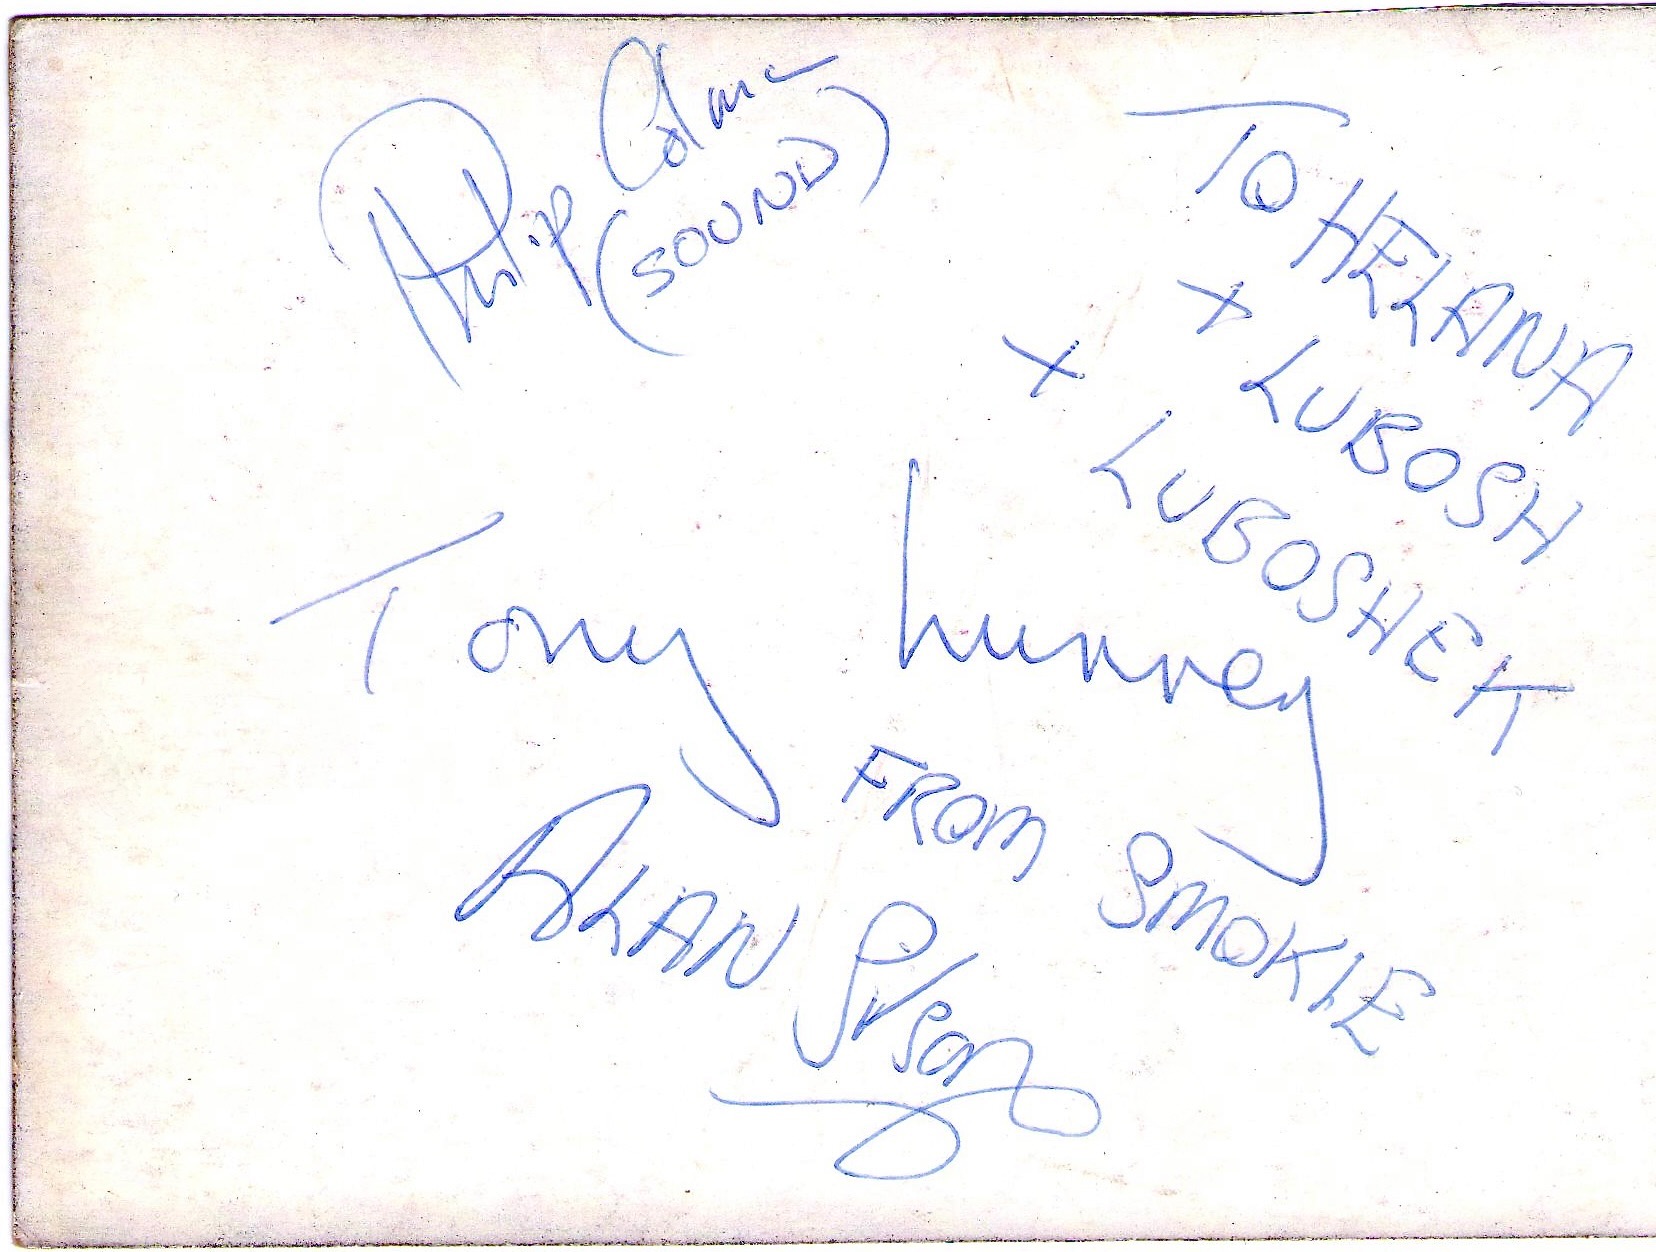 Philip
(SOUND)
TO HELANA
+ LUBOSH
+ LUBOSHEK
Tony Lunney
FROM SMOKIE
ALAN Silson